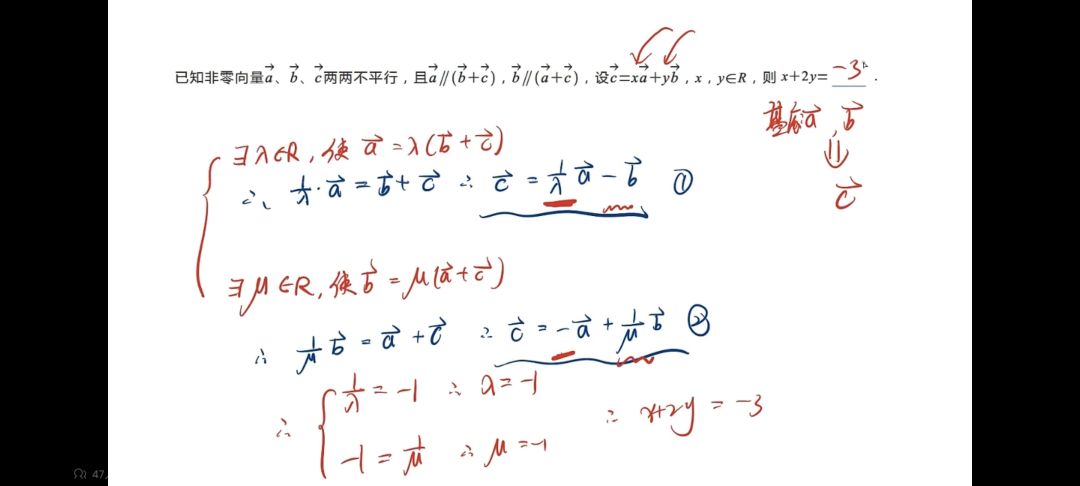 已知非零向量a⃗、b⃗、c⃗两两不平行，且a⃗∥(b⃗+c⃗)，b⃗∥(a⃗+c⃗)，设c⃗=xa⃗+yb⃗，x，y∈R，则 x+2y= -3 .
基底a⃗, b⃗
⇓
c⃗
∃λ∈R, 使 a⃗=λ(b⃗+c⃗)
∴ 1/λ·a⃗=b⃗+c⃗ ∴ c⃗=1/λ a⃗-b⃗ ①
∃μ∈R, 使b⃗=μ(a⃗+c⃗)
∴ 1/μ b⃗=a⃗+c⃗ ∴ c⃗=-a⃗+1/μ b⃗ ②
∴ { 1/λ=-1 ∴ λ=-1
-1=1/μ ∴ μ=-1
∴ x+2y=-3
47